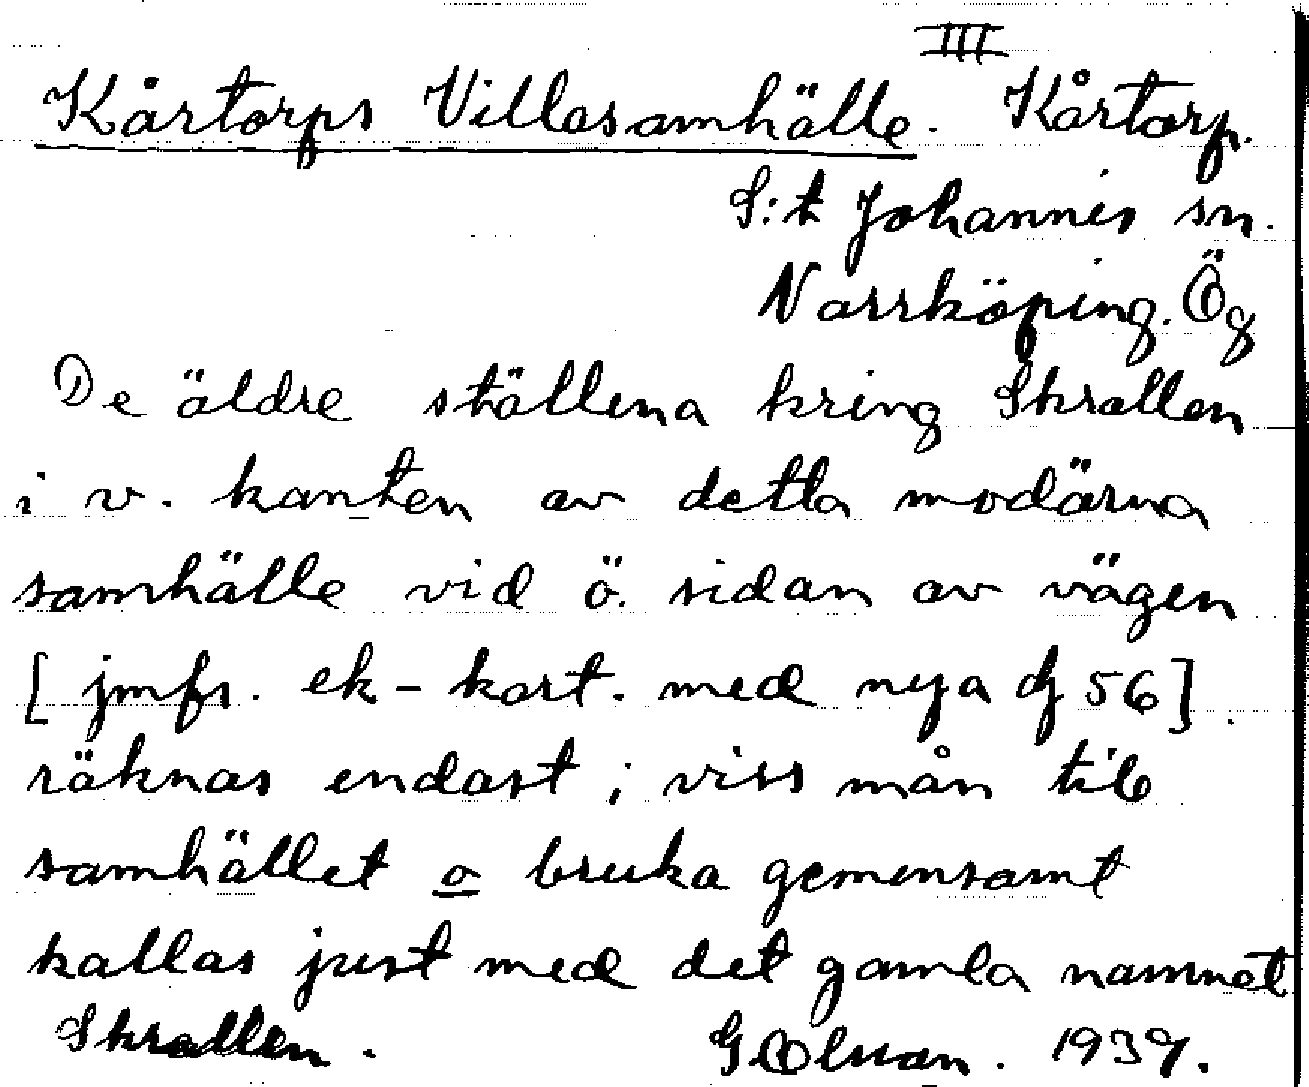 III
Kårtorps Villasamhälle. Kårtorp.
S:t Johannis sn.
Norrköping. Ög
De äldre ställena kring Skrallen
i v. kanten av detta modärna
samhälle vid ö. sidan av vägen
[jmfr. ek-kart. med nya df 56]
räknas endast i viss mån till
samhället o bruka gemensamt
kallas just med det gamla namnet
Skrallen. 1939.